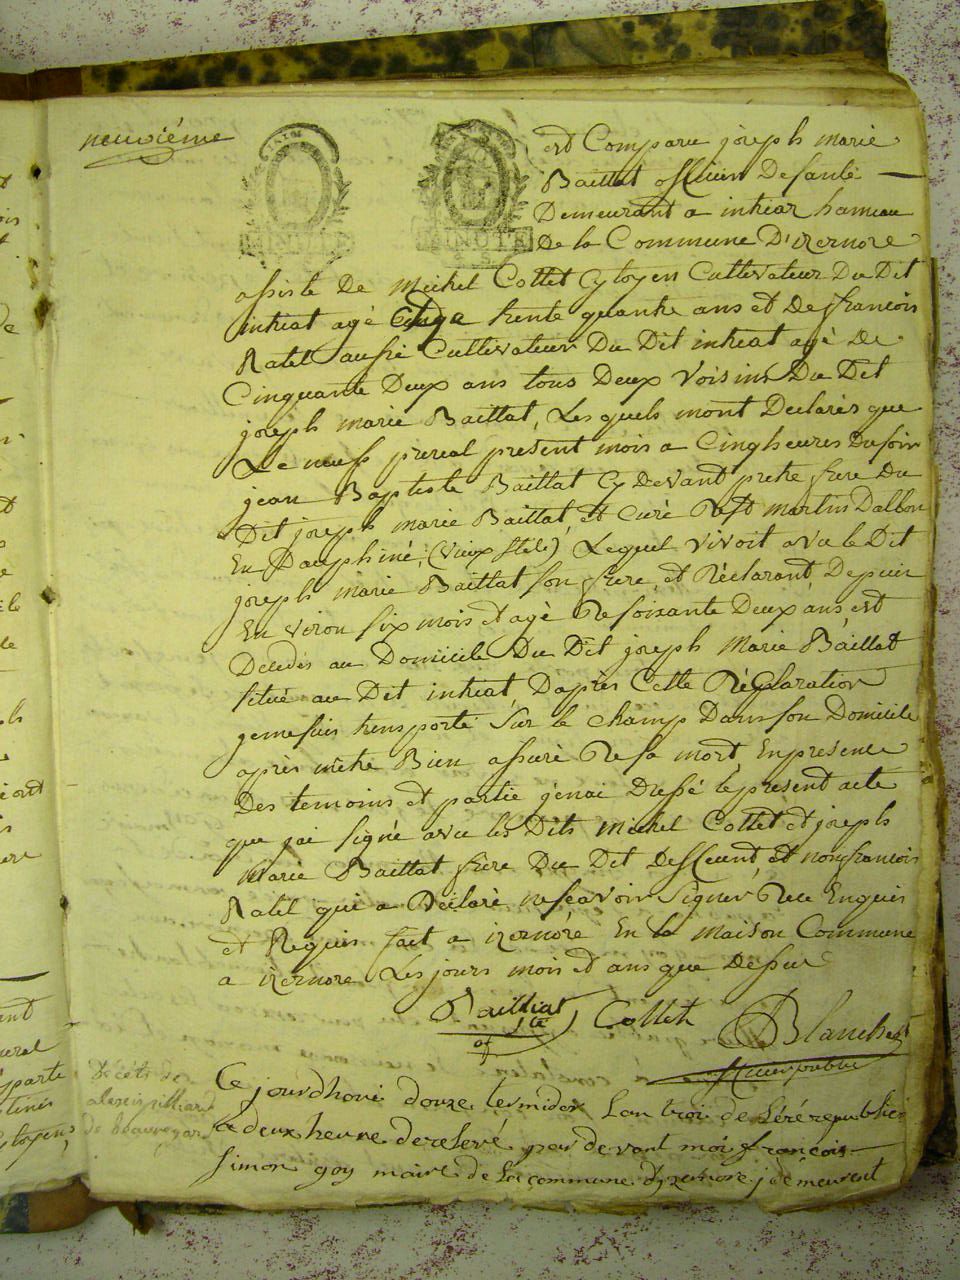 neuviéme
MINUTE
MINUTE
est Comparu joseph marie
Baillat officier De santé
Demeurant a intriat hameau
De la Commune D'izernore
assiste De Michel Collet Cytoyen Cultivateur Du Dit
intriat agé trente quantre ans et De francois
Ratel aussi Cultivateur Du Dit intriat agé De
Cinquante Deux ans tous Deux Voisins Du Dit
joseph marie Baillat, Lesquels mont Declarés que
Le neuf prereal present mois a Cinq heures Du soir
jean Baptiste Baillat Cy Devant pretre frere Du
Dit joseph marie Baillat, et Curé De St martin Dalbon
En Dauphiné, (vieux stile), Lequel vivoit avec le Dit
joseph marie Baillat son frere, et Déclarant, Depuis
En viron six mois et agé De soixante Deux ans est
Decedés au Domicile Du Dit joseph Marie Baillat
situé au Dit intriat, Daprès Cette Déclaration
je me suis transporté sur le champ Dans son Domicile
après mêtre Bien assuré De sa mort, En presence
Des temoins et partie jenai Dressé le present acte
que jai signé avec les Dits Michel Collet et joseph
Marie Baillat frère Du Dit Desscunt, et non francois
Ratel qui a Déclaré ne scavoir signer De ce Enquis
et Requis fait a izernore En la Maison Commune
a izernore Les jours mois et ans que Dessus
Bailliat Collet Blanchet
of
Ce jourdhoui douze termidor Lan troi de
a deux heure de relevé par devant moi francois
simon goy maire de la commune dyzernore y demeurent
Décés de
alexis pilliard
de beauregard